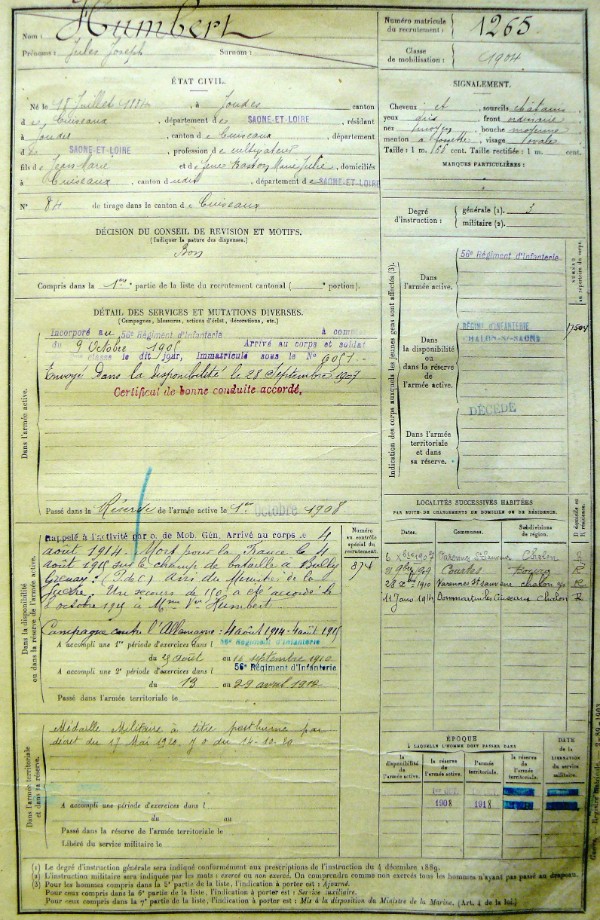 Nom : Humbert
Prénoms : Jules Joseph Surnom :
Numéro matricule
du recrutement : 1265
Classe
de mobilisation : 1904
ÉTAT CIVIL.
Né le Juillet 1884, à Joudes, canton
de Cuiseaux, département de SAONE-ET-LOIRE, résidant
à Joudes, canton de Cuiseaux, département
de SAONE-ET-LOIRE, profession de cultivateur
fils de Jean Marie et de Marie Julie, domiciliés
à Cuiseaux, canton dudit, département de SAONE-ET-LOIRE
N° 84 de tirage dans le canton de Cuiseaux
SIGNALEMENT.
Cheveux et sourcils châtains
yeux gris, front ordinaire
nez bouche moyenne
menton à fossette, visage ovale
Taille : 1 m. cent. Taille rectifiée : 1 m. cent.
MARQUES PARTICULIÈRES :
DÉCISION DU CONSEIL DE REVISION ET MOTIFS.
(Indiquer la nature des dispenses.)
Bon
Compris dans la 1re partie de la liste du recrutement cantonal ( portion).
Degré
d'instruction :
générale (1). 3
militaire (2).
DÉTAIL DES SERVICES ET MUTATIONS DIVERSES.
(Campagnes, blessures, actions d'éclat, décorations, etc.)
Dans l'armée active.
Incorporé au 56e Régiment d'Infanterie à compter
du 9 Octobre 1905 Arrivé au corps et soldat
classe le dit jour, immatriculé sous le N° 6057
Envoyé dans la disponibilité le 28 Septembre 1907
Certificat de bonne conduite accordé.
Passé dans la Réserve de l'armée active le 1er Octobre 1908
Indication des corps auxquels les jeunes gens sont affectés (3).
Dans
l'armée active.
56e Régiment d'Infanterie
NUMÉRO
au répertoire du corps.
Dans
la disponibilité
ou dans la réserve
de
l'armée active.
RÉGIM. D'INFANTERIE
CHALON-S-SAONE
Dans
l'armée territoriale
et dans
sa réserve.
DÉCÉDÉ
Dans la disponibilité
ou dans la réserve de l'armée active.
Rappelé à l'activité par o. de Mob. Gén. Arrivé au corps le 4
août 1914. Mort pour la France le 4
août 1915 sur le champ de bataille à Bully
Grenay (P.d.C) Avis du Ministre de la
Guerre. Un secours de 150 f a été accordé le
octobre 1915 à Mme Vve Humbert
Campagne contre l'Allemagne : 4 août 1914 - 4 août 1915
A accompli une 1re période d'exercices dans l 56e Régiment d'Infanterie
du 25 août au 16 septembre 1910
A accompli une 2e période d'exercices dans l 56e Régiment d'Infanterie
du 13 au 29 avril 1912
Passé dans l'armée territoriale le
Numéro
au contrôle
spécial du
recrutement.
874
LOCALITÉS SUCCESSIVES HABITÉES
PAR SUITE DE CHANGEMENTS DE DOMICILE OU DE RÉSIDENCE.
Dates.
Communes.
Subdivisions
de région.
D domicile ou
R résidence.
6 1907 Varennes St Sauveur Châlon R
9bre 1909 Bourg R
28 1910 Varennes St Sauveur Chalon R
11 Janv 1914 Dommartin les Cuiseaux Chalon R
Dans l'armée territoriale
et dans sa réserve.
Médaille Militaire à titre posthume par
décret du 17 Mai 1920. J O du 14-10-20
A accompli une période d'exercices dans l
du au
Passé dans la réserve de l'armée territoriale le
Libéré du service militaire le
ÉPOQUE
À LAQUELLE L'HOMME DOIT PASSER DANS
la
disponibilité
de
l'armée active.
la réserve
de
l'armée active.
l'armée
territoriale.
la réserve
de
l'armée
territoriale.
DATE
DE LA
LIBÉRATION
du service
militaire.
1908 1918
(1) Le degré d'instruction générale sera indiqué conformément aux prescriptions de l'instruction du 4 décembre 1889.
(2) L'instruction militaire sera indiquée par les mots : exercé ou non exercé. On comprendra comme non exercés tous les hommes n'ayant pas passé au drapeau.
(3) Pour les hommes compris dans la 5e partie de la liste, l'indication à porter est : Ajourné.
Pour ceux compris dans la 6e partie de la liste, l'indication à porter est : Service auxiliaire.
Pour ceux compris dans la 7e partie de la liste, l'indication à porter est : Mis à la disposition du Ministre de la Marine. (Art. 4 de la loi.)